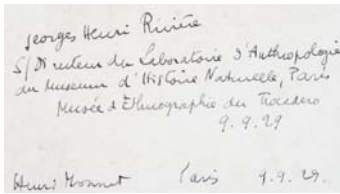 Georges Henri Rivière
S/Directeur du Laboratoire d'Anthropologie
du Museum d'Histoire Naturelle, Paris
Musée d'Ethnographie du Trocadero
9.9.29
Henri Monnet Paris 9.9.29.